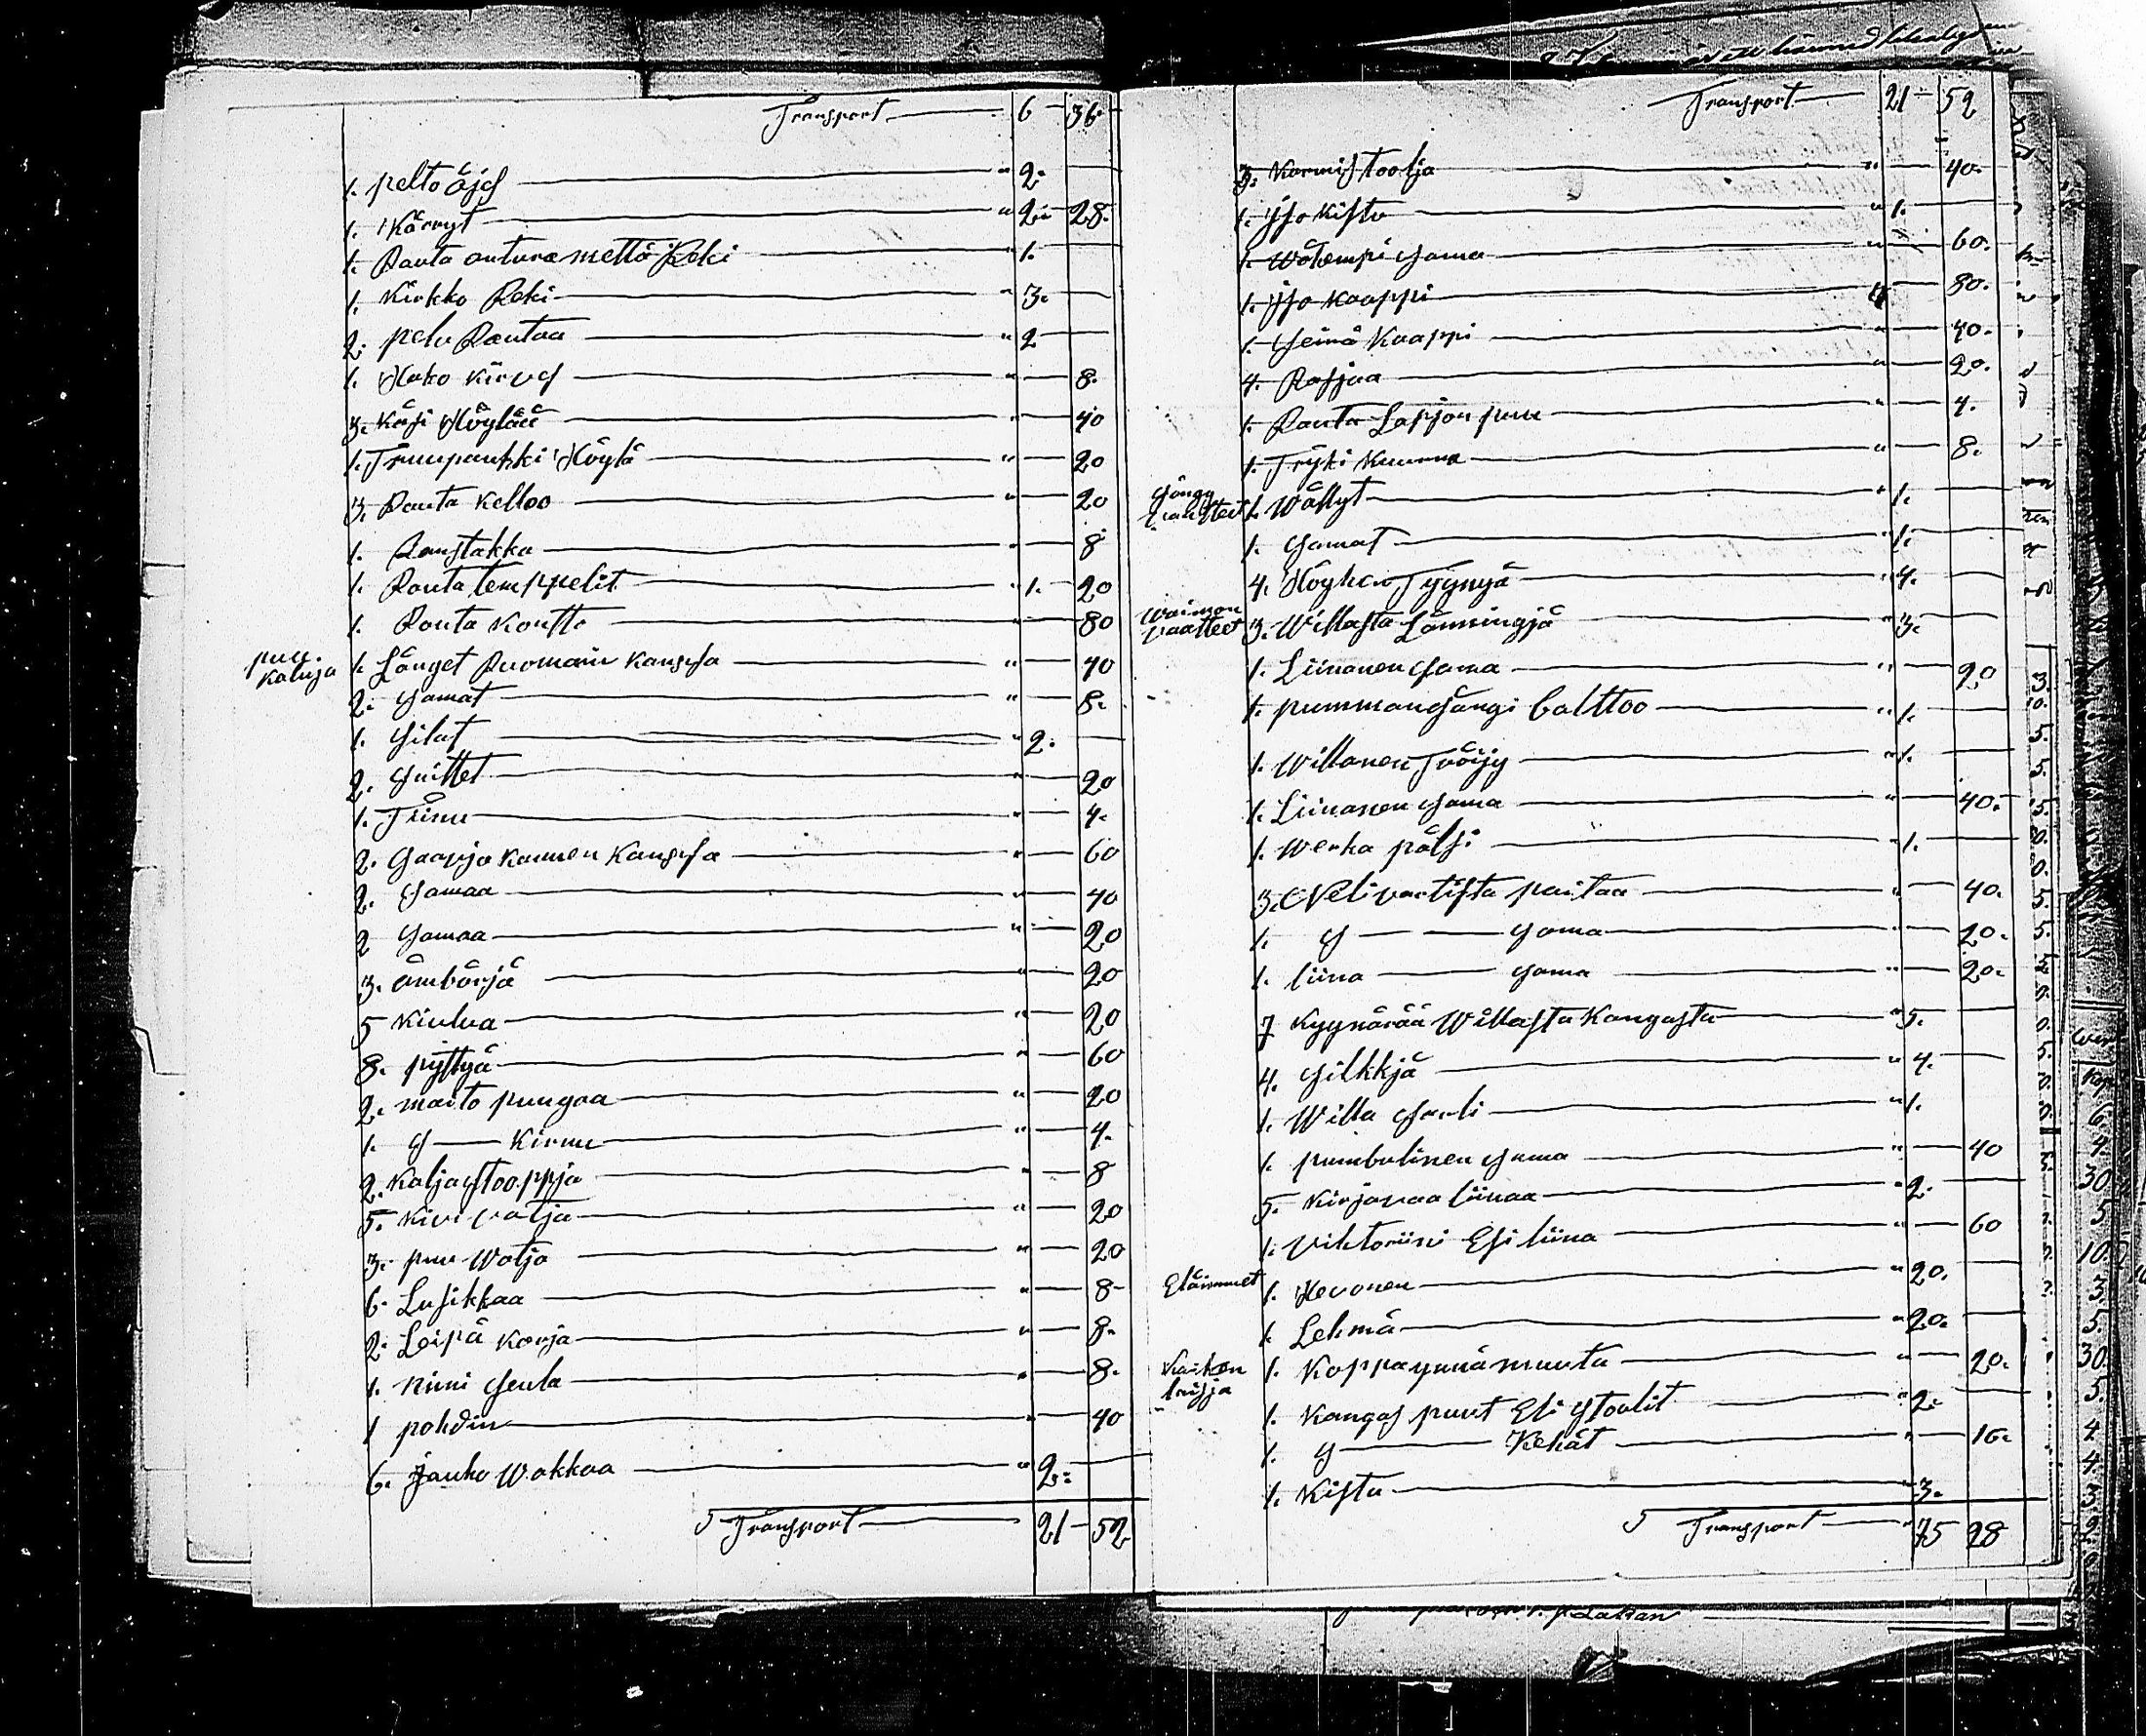 Transport — 6 — 36.
1. pelto äjes — " 2.
1. Kärryt — " 2. 28.
1. Rauta anturamettä Reki — " 1.
1. Kirkko Reki — " 3.
2. pelu Rautaa — " 2
1. Hako kirves — " — 8.
3. Käsi Höylää — " — 40
1. Truupankki Höylä — " — 20
3. Rauta Kelloo — " — 20
1. Raustakka — " — 8
1. Rauta temppelit — " 1. 20
1. Rauta Kontto — " — 80
puu kaluja
1. Länget Ruomain kanssa — " — 40
2. Samat — " — 8.
1. Silat — " 2.
2. Suittet — " — 20
1. Tiinu — " — 4.
2. Saavja kannen kanssa — " — 60
2. Samaa — " — 40
2 Samaa — " — 20
3. ämbärjä — " — 20
5 Kiulua — " — 20
8. pyttyä — " — 60
2. maito pungaa — " — 20
1. S — Kirnu — " — 4.
2. Kaljastooppja — " — 8
5. Kivi vatja — " — 20
3. puu Watja — " — 20
6. Lusikkaa — " — 8
2. Leipä korja — " — 8.
1. niini Seula — " — 8.
1 pohdin — " — 40
6. jauho Wakkaa — " 2.
Transport — 21 — 52
Transport — 21 — 52
3. Karmistoolja — " — 40.
1. Iso kistu — " 1.
1. Wähempi Sama — " — 60.
1. Iso kaappi — " — 80.
1. Seinä kaappi — " — 40.
4. Rasjaa — " — 20.
1. Rauta Lapjon puu — " — 4.
1. Tryki kuurna — " — 8.
Sängy vaatteet
1. Wällyt — " 1.
1. Samat — " 1.
4. Höyhen Tyynyä — " 4.
Waimon vaatteet
3. Willasta Länningjä — " 3.
1. Liinanen Sama — " — 20
1. pummansängi balttoo — " 1.
1. Willanen Tröijy — " 1.
1. Liinanen Sama — " — 40.
1. Werka pälsi — " 1.
3. Nelivartista paitaa — " — 40.
1. S — Sama — " — 20.
1. liina — Sama — " — 20.
7 Kyynärää Willasta Kangasta — " 5.
4. Silkkjä — " 4.
1. Willa Saali — " 1.
1. pumbulinen Sama — " — 40
5. Kirjavaa liinaa — " 2.
1. Viktoriini Esiliina — " — 60
Eläimmet
1. Hevonen — " 20.
1. Lehmä — " 20.
Kaiken laisja
1. Koppa ynnä muuta — " — 20.
1. Kangas puut Eli Stoolit — " 2.
1. S — Kehät — " — 16.
1. Kistu — 3.
Transport — " 75 28